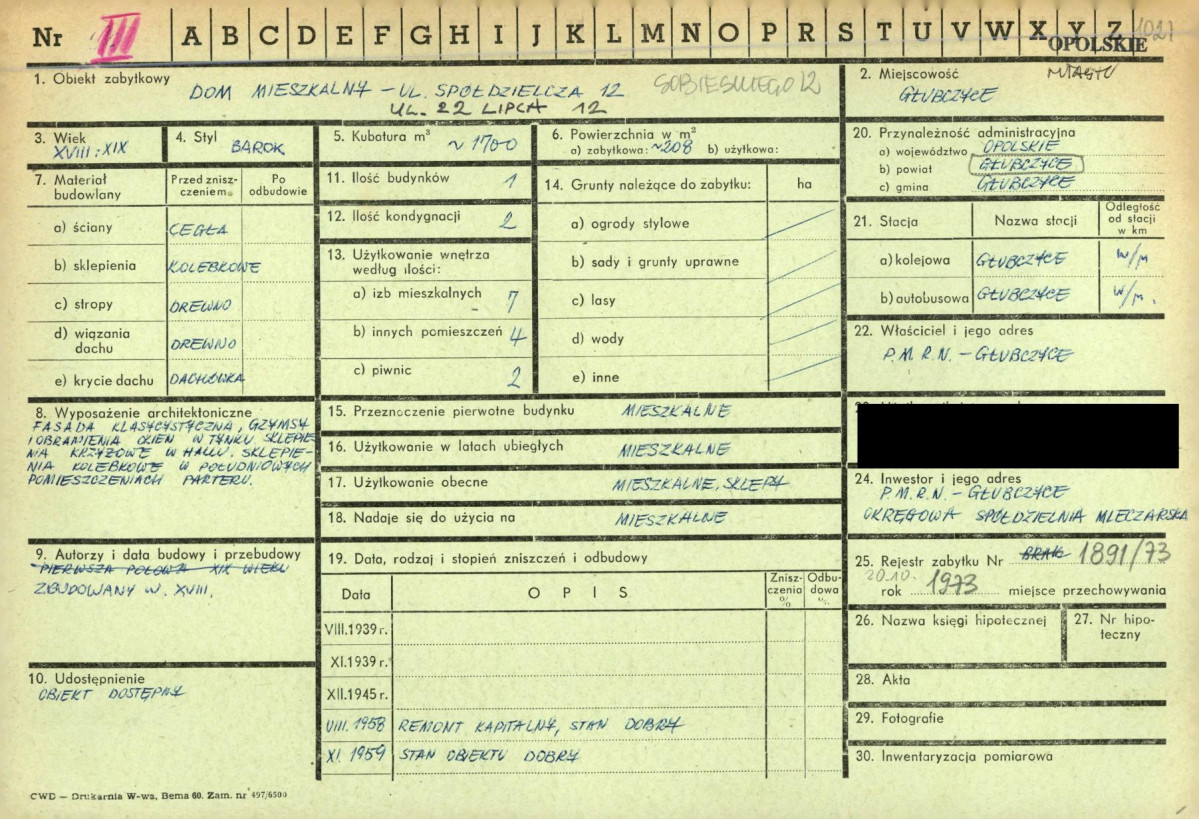 Nr III A B C D E F G H I J K L M N O P R S T U V W X Y Z
OPOLSKIE
1. Obiekt zabytkowy
DOM MIESZKALNY – UL. SPÓŁDZIELCZA 12 SOBIESKIEGO 12
UL. 22 LIPCA 12
2. Miejscowość MIASTO
GŁUBCZYCE
3. Wiek
XVIII : XIX
4. Styl BAROK
5. Kubatura m³
~ 1700
6. Powierzchnia w m²
a) zabytkowa: ~208 b) użytkowa:
20. Przynależność administracyjna
a) województwo OPOLSKIE
b) powiat GŁUBCZYCE
c) gmina GŁUBCZYCE
7. Materiał budowlany
Przed znisz-
czeniem
Po
odbudowie
a) ściany CEGŁA
b) sklepienia KOLEBKOWE
c) stropy DREWNO
d) wiązania
dachu DREWNO
e) krycie dachu DACHÓWKA
11. Ilość budynków 1
12. Ilość kondygnacji 2
13. Użytkowanie wnętrza
według ilości:
a) izb mieszkalnych 7
b) innych pomieszczeń 4
c) piwnic 2
14. Grunty należące do zabytku: ha
a) ogrody stylowe
b) sady i grunty uprawne
c) lasy
d) wody
e) inne
21. Stacja Nazwa stacji
Odległość
od stacji
w km
a) kolejowa GŁUBCZYCE W/M
b) autobusowa GŁUBCZYCE W/M.
22. Właściciel i jego adres
P.M.R.N. – GŁUBCZYCE
8. Wyposażenie architektoniczne
FASADA KLASYCYSTYCZNA, GZYMSY
I OBRAMIENIA OKIEN W TYNKU. SKLEPIE-
NIA KRZYŻOWE W HALLU. SKLEPIE-
NIA KOLEBKOWE W POŁUDNIOWYCH
POMIESZCZENIACH PARTERU.
15. Przeznaczenie pierwotne budynku MIESZKALNE
16. Użytkowanie w latach ubiegłych MIESZKALNE
17. Użytkowanie obecne MIESZKALNE, SKLEPY
18. Nadaje się do użycia na MIESZKALNE
24. Inwestor i jego adres
P.M.R.N. – GŁUBCZYCE
OKRĘGOWA SPÓŁDZIELNIA MLECZARSKA
9. Autorzy i data budowy i przebudowy
PIERWSZA POŁOWA XIX WIEKU
ZBUDOWANY W. XVIII.
19. Data, rodzaj i stopień zniszczeń i odbudowy
Data OPIS
Znisz-
czenia
%
Odbu-
dowa
%
VIII.1939 r.
XI.1939 r.
XII.1945 r.
VIII. 1958 REMONT KAPITALNY, STAN DOBRY
XI. 1959 STAN OBIEKTU DOBRY
25. Rejestr zabytku Nr BRAK 1891/73
20.10.
rok 1973 miejsce przechowywania
26. Nazwa księgi hipotecznej
27. Nr hipo-
teczny
10. Udostępnienie
OBIEKT DOSTĘPNY
28. Akta
29. Fotografie
30. Inwentaryzacja pomiarowa
CWD — Drukarnia W-wa, Bema 60. Zam. nr 497/6500